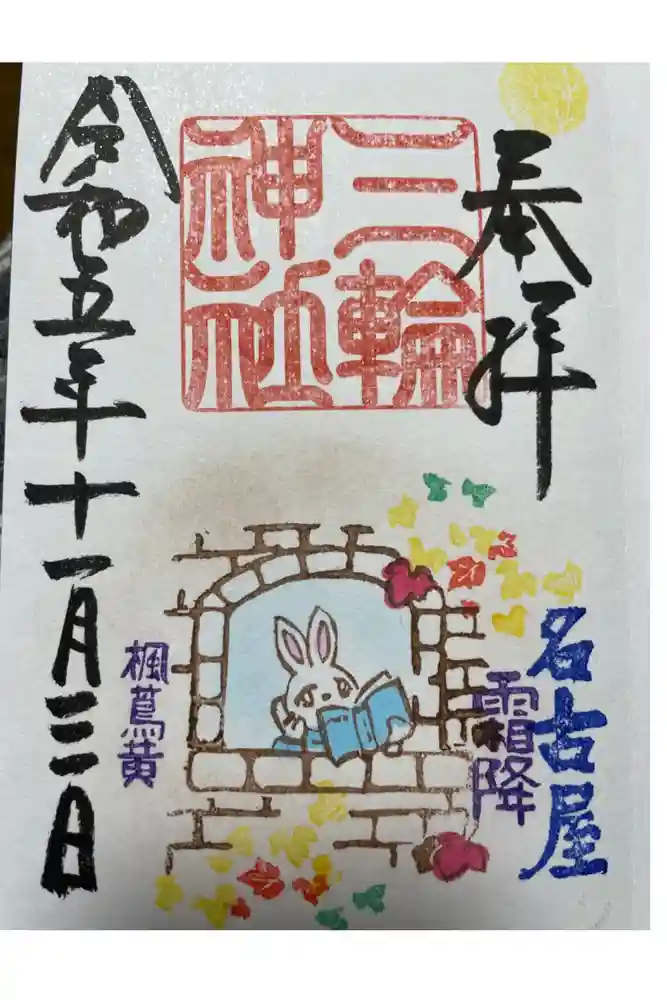 奉拝
三輪
神社
名古屋
霜降
楓蔦黄
令和五年十一月三日